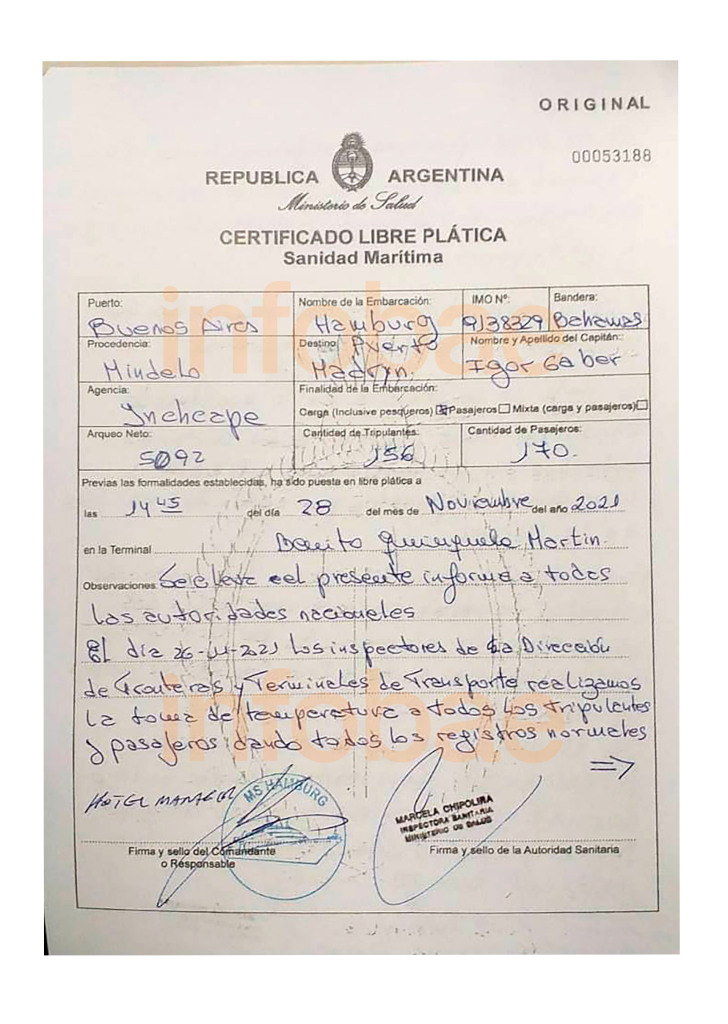 ORIGINAL
00053188
REPUBLICA ARGENTINA
Ministerio de Salud
CERTIFICADO LIBRE PLÁTICA
Sanidad Marítima
Puerto: Nombre de la Embarcación: IMO Nº: Bandera:
Buenos Aires Hamburg 9138329 Bahamas
Procedencia: Destino Puerto Nombre y Apellido del Capitán:
Mindelo Madryn. Igor Gaber
Agencia: Finalidad de la Embarcación:
Inchcape Carga (Inclusive pesqueros) Pasajeros Mixta (carga y pasajeros)
Arqueo Neto: Cantidad de Tripulantes: Cantidad de Pasajeros:
5092 156 170.
Previas las formalidades establecidas, ha sido puesta en libre plática a
las 14 45 del día 28 del mes de Noviembre del año 2021
en la Terminal Benito Quinquela Martin.
Observaciones Se eleva el presente informe a todas
las autoridades nacionales
El día 26-11-2021 los inspectores de la Dirección
de Fronteras y Terminales de Transporte realizamos
la toma de temperatura a todos los tripulantes
y pasajeros dando todos los registros normales
⇒
HOTEL MANAGER
MS HAMBURG
MARCELA CHIPOLINA
INSPECTORA SANITARIA
MINISTERIO DE SALUD
Firma y sello del Comandante
o Responsable
Firma y sello de la Autoridad Sanitaria
infobae
infobae